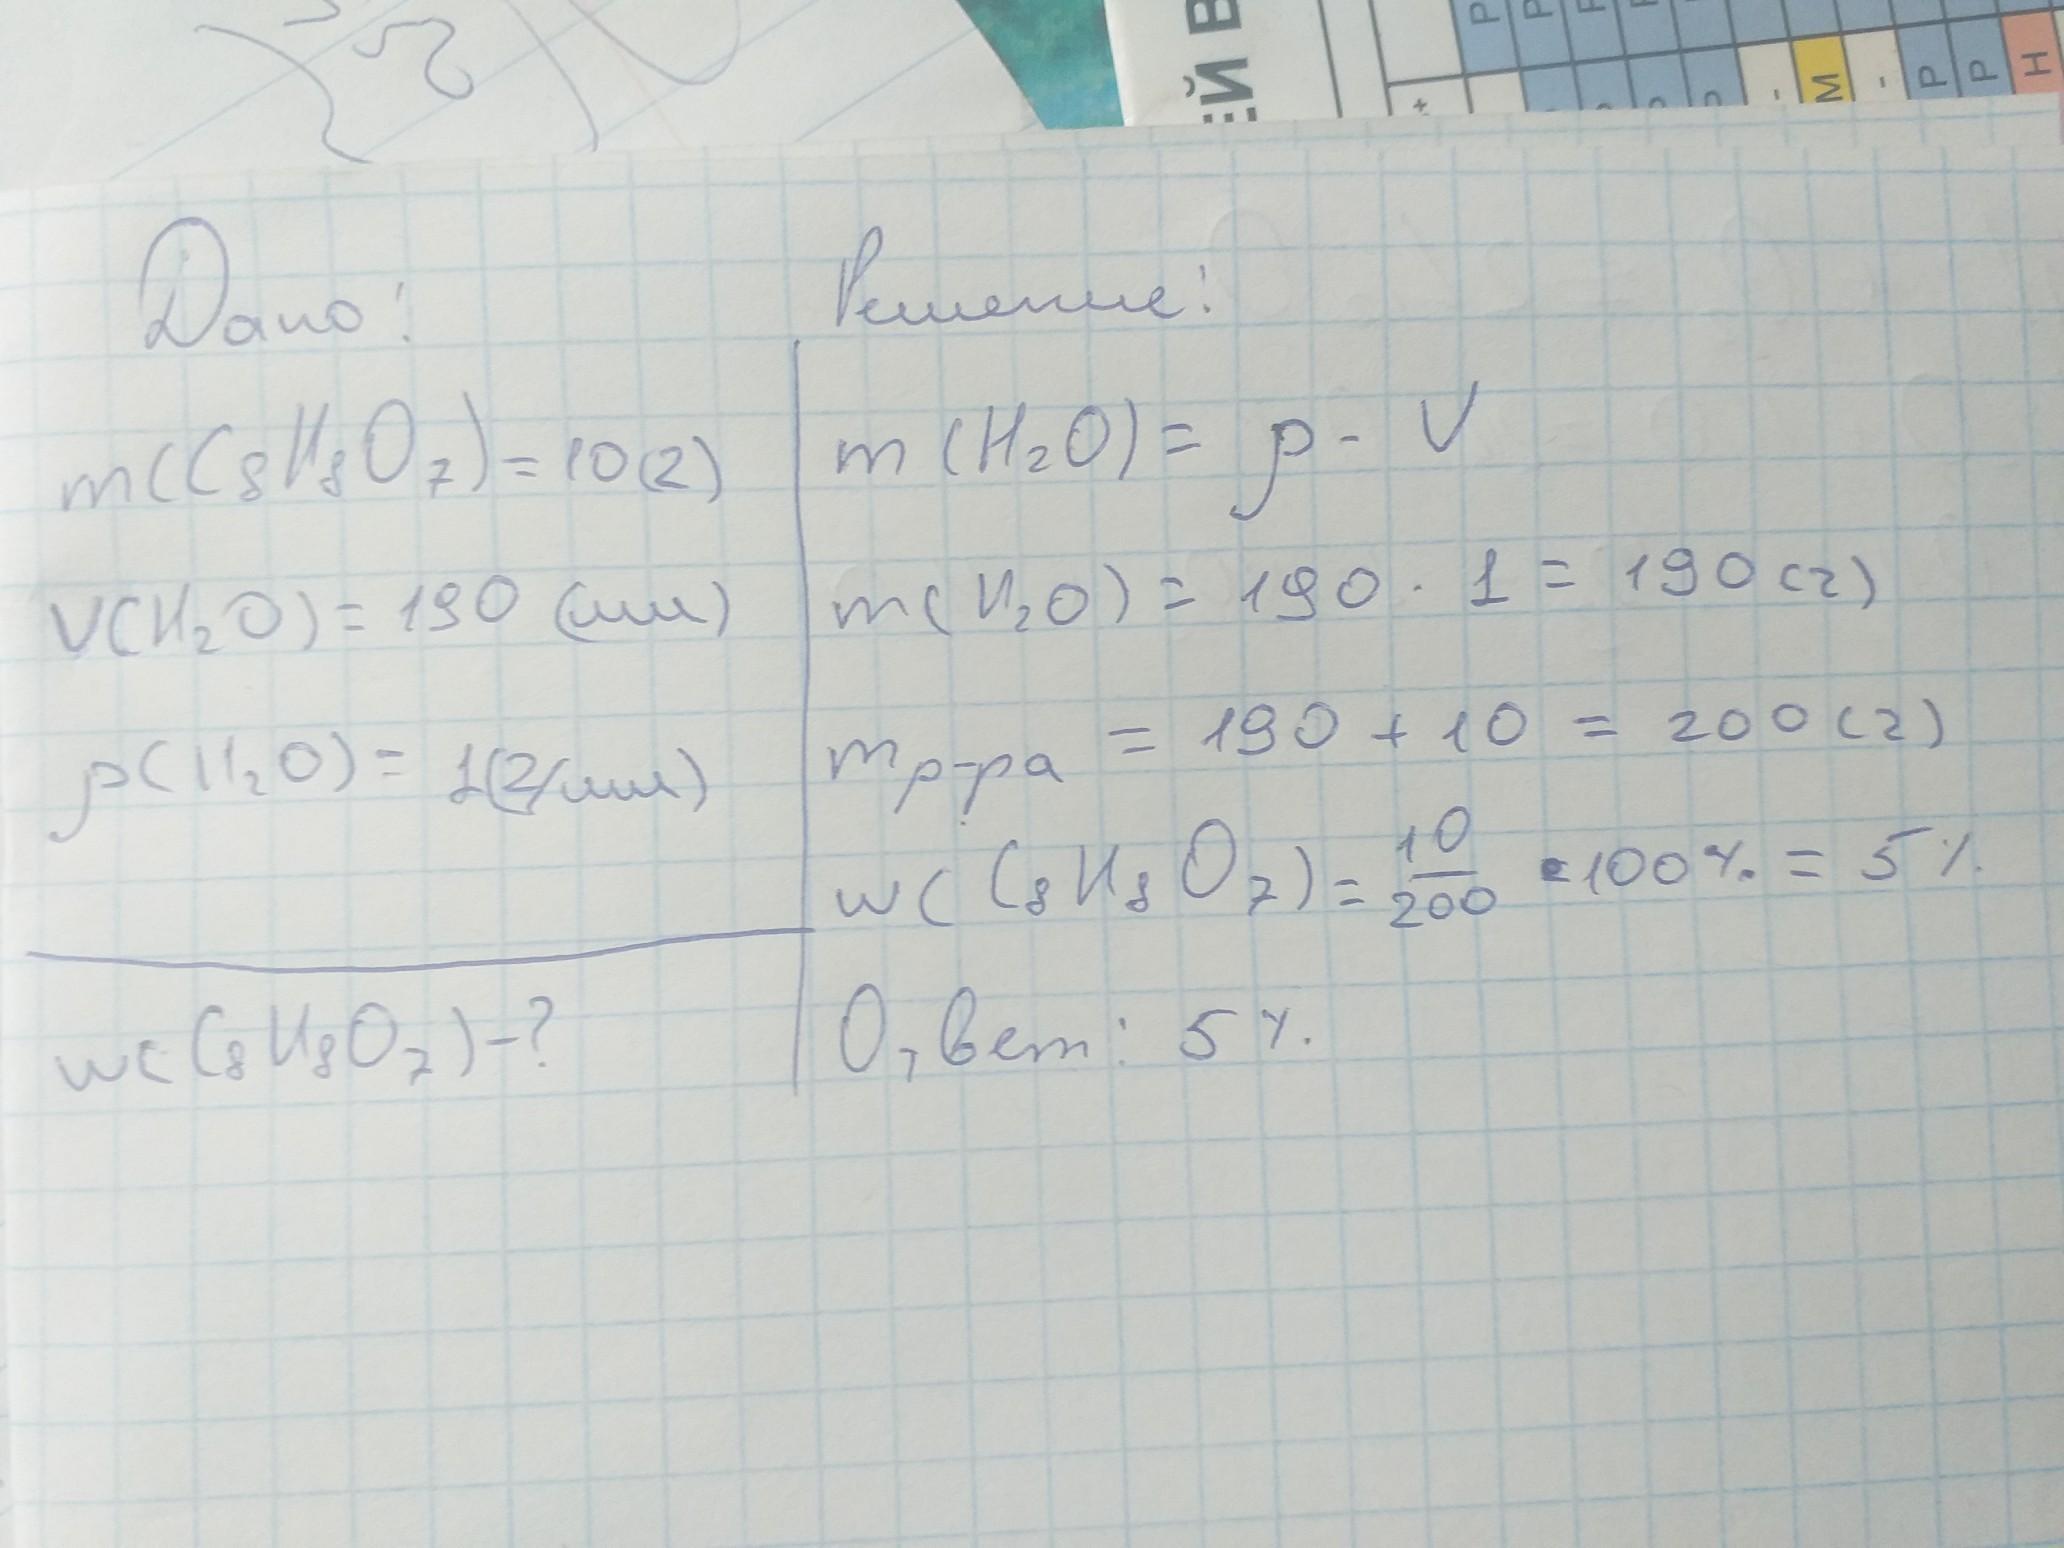 ЕЙ В
Р Р
+ - М - Р Р Н
Дано:
m(C₈H₈O₇) = 10(г)
V(H₂O) = 190 (мл)
ρ(H₂O) = 1(г/мл)
w(C₈H₈O₇) - ?
Решение:
m(H₂O) = ρ · V
m(H₂O) = 190 · 1 = 190(г)
mр-ра = 190 + 10 = 200(г)
w(C₈H₈O₇) = 10/200 · 100% = 5%
Ответ: 5%.